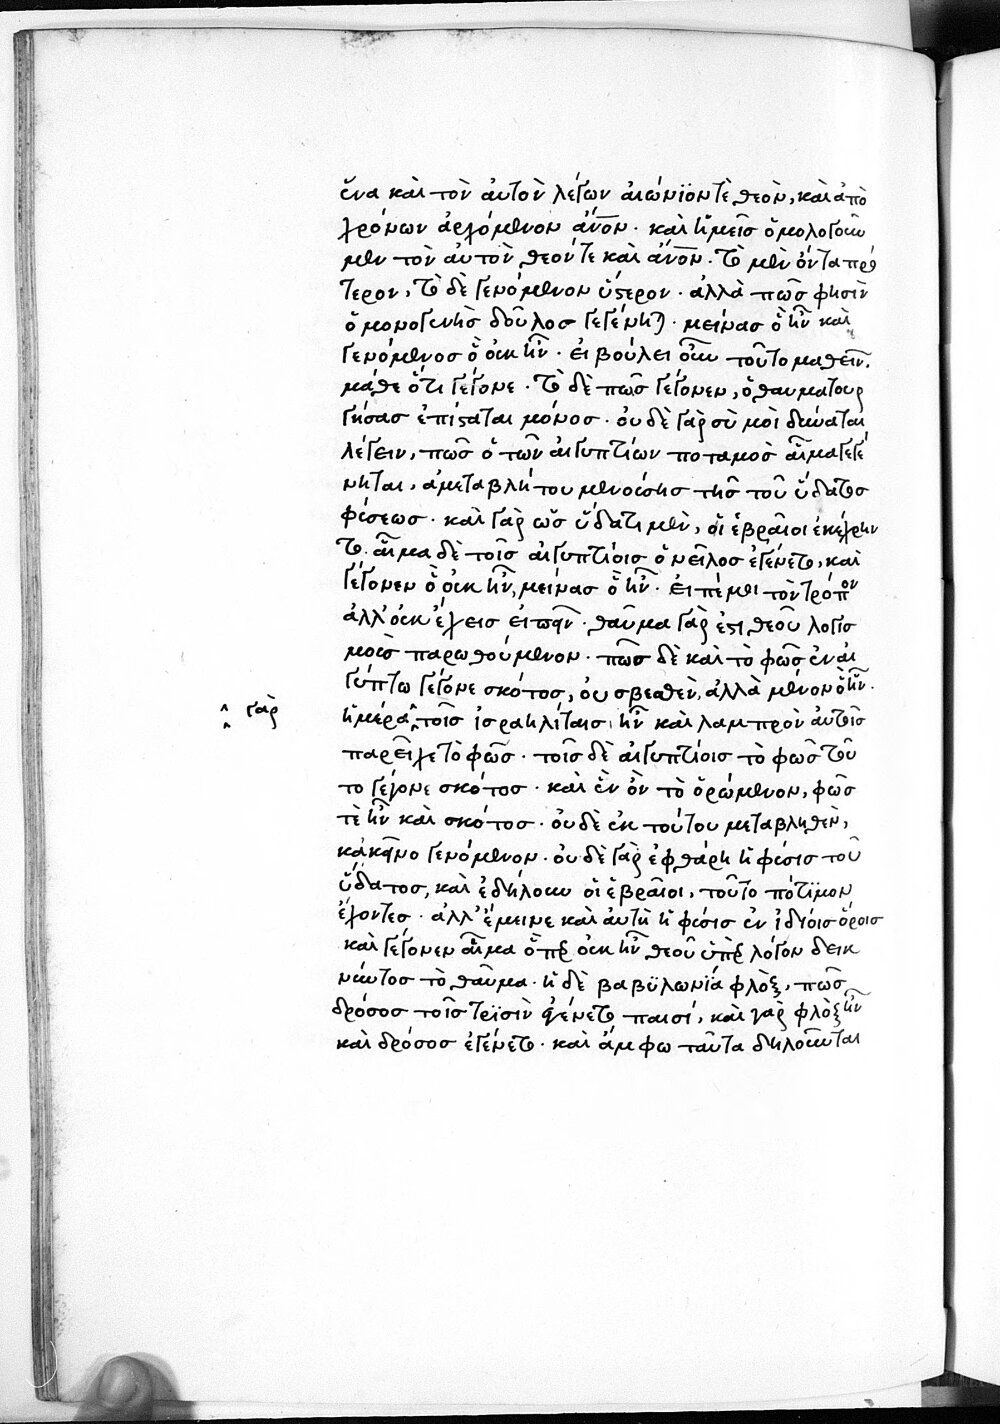 ἕνα καὶ τὸν αὐτὸν λέγων αἰώνϊόν τὲ θεὸν, καὶ ἀπὸ
χρόνων ἀρχόμενον ἄνον. καὶ ἡμεῖς ὁμολογοῦ
μεν τὸν αὐτὸν θεόν τε καὶ ἄνον. τὸ μὲν ὄντα πρό
τερον, τὸ δὲ γενόμενον ὕστερον. ἀλλὰ πῶς φησὶν
ὁ μονογενὴς δοῦλος γεγένηται. μείνας ὃ ἦν καὶ
γενόμενος ὃ οὐκ ἦν. εἰ βούλει οὖν τοῦτο μαθεῖν.
μάθε ὅτι γέγονε. τὸ δὲ πῶς γέγονεν, ὁ θαυματουρ
γήσας ἐπίσταται μόνος. οὐδὲ γὰρ σὺ μοὶ δύναται
λέγειν, πῶς ὁ τῶν αἰγυπτίων ποταμὸς αἷμα γεγέ
νηται, ἀμεταβλήτου μενούσης τῆς τοῦ ὕδατος
φύσεως. καὶ γὰρ ὡς ὕδατι μὲν, οἱ ἑβραῖοι ἐκέχρην
το. αἷμα δὲ τοῖς αἰγυπτίοις ὁ νεῖλος ἐγένετο, καὶ
γέγονεν ὃ οὐκ ἦν, μείνας ὃ ἦν. εἰπέ μοι τὸν τρόπον
ἀλλ' οὐκ ἔχεις εἰπεῖν. θαῦμα γὰρ ἐστι θεοῦ λογισ
μοῖς παρωθούμενον. πῶς δὲ καὶ τὸ φῶς ἐν αἰ
γύπτω γέγονε σκότος, οὐ σβεσθὲν, ἀλλὰ μένον ὃ ἦν.
^ γὰρ
ἡμέρα ^ τοῖς ἰσραηλίταις, ἦν καὶ λαμπρὸν αὐτοῖς
παρεῖχε τὸ φῶς. τοῖς δὲ αἰγυπτίοις τὸ φῶς τοῦ
το γέγονε σκότος. καὶ ἓν ὂν τὸ ὁρώμενον, φῶς
τὲ ἦν καὶ σκότος. οὐδὲ ἐκ τούτου μεταβληθὲν,
κἀκεῖνο γενόμενον. οὐδὲ γὰρ ἐφθάρη ἡ φύσις τοῦ
ὕδατος, καὶ ἐδήλουν οἱ ἑβραῖοι, τοῦτο πότϊμον
ἔχοντες. ἀλλ' ἔμεινε καὶ αὐτὴ ἡ φύσις ἐν ἰδίοις ὅροις
καὶ γέγονεν αἷμα ὅπερ οὐκ ἦν θεοῦ ὑπὲρ λόγον δεικ
νύντος τὸ θαῦμα. ἡ δὲ βαβϋλωνΐα φλὸξ, πῶς
δρόσος τοῖς τρϊσὶν ἐγένετο παισί, καὶ γὰρ φλὸξ ἦν
καὶ δρόσος ἐγένετο. καὶ ἄμφω ταῦτα δηλοῦνται